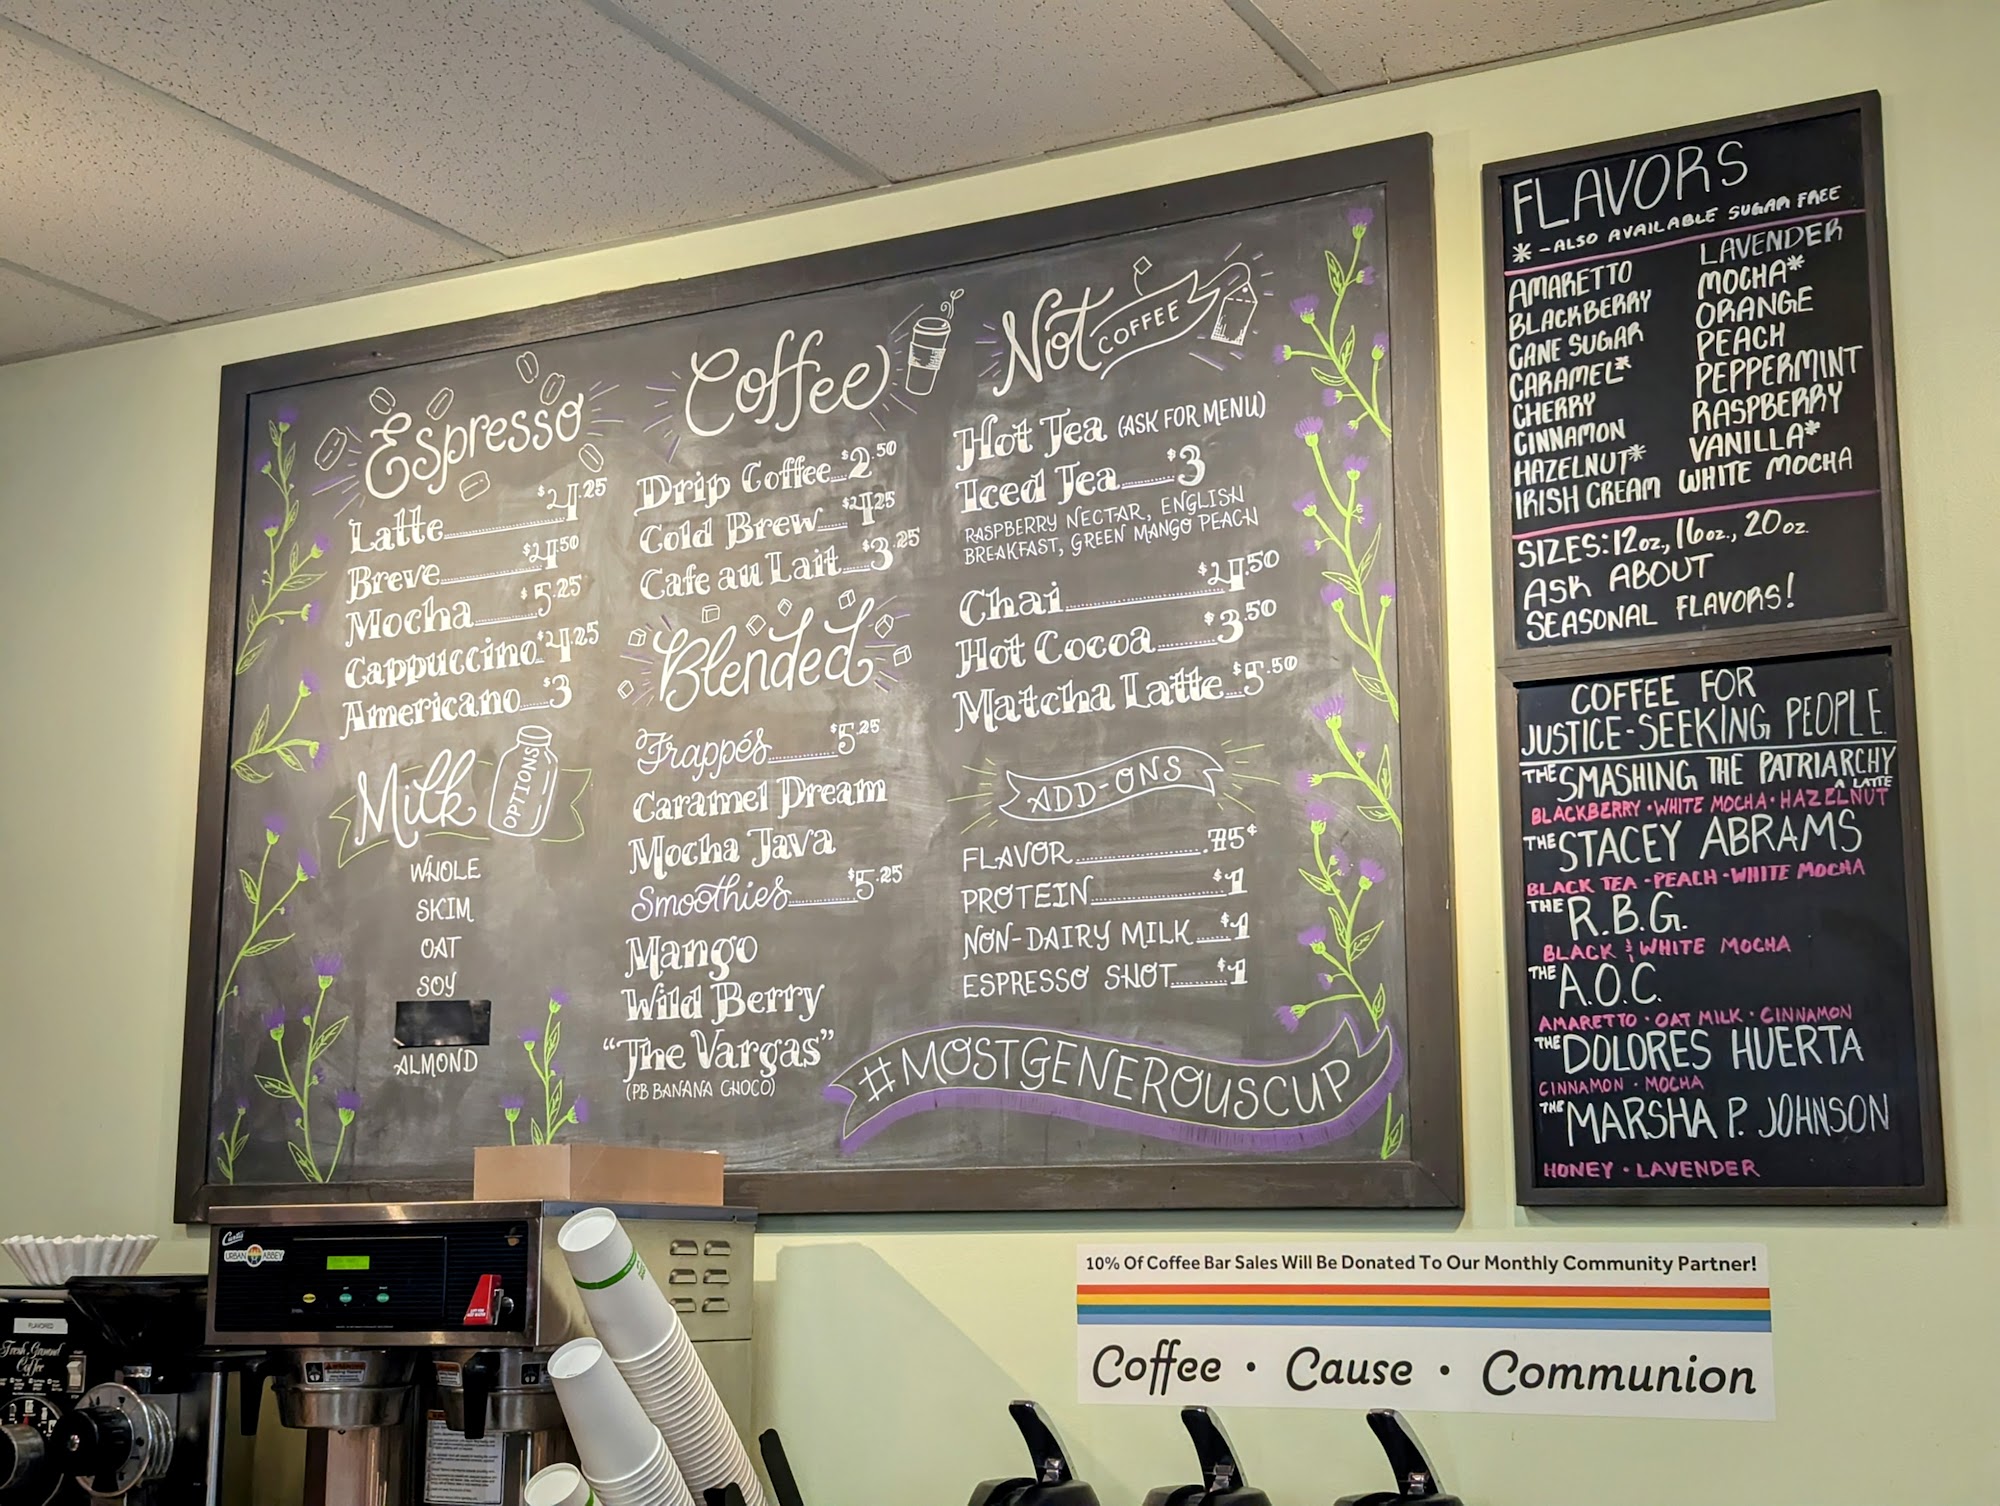 Espresso
Latte $4.25
Breve $4.50
Mocha $5.25
Cappuccino $4.25
Americano $3
Milk OPTIONS
WHOLE
SKIM
OAT
SOY
ALMOND
Coffee
Drip Coffee $2.50
Cold Brew $4.25
Cafe au Lait $3.25
Blended
Frappés $5.25
Caramel Dream
Mocha Java
Smoothies $5.25
Mango
Wild Berry
"The Vargas"
(PB BANANA CHOCO)
Not COFFEE
Hot Tea (ASK FOR MENU)
Iced Tea $3
RASPBERRY NECTAR, ENGLISH
BREAKFAST, GREEN MANGO PEACH
Chai $4.50
Hot Cocoa $3.50
Matcha Latte $5.50
ADD-ONS
FLAVOR .75¢
PROTEIN $1
NON-DAIRY MILK $1
ESPRESSO SHOT $1
#MOSTGENEROUSCUP
FLAVORS
* - ALSO AVAILABLE SUGAR FREE
AMARETTO
BLACKBERRY
CANE SUGAR
CARAMEL*
CHERRY
CINNAMON
HAZELNUT*
IRISH CREAM
LAVENDER
MOCHA*
ORANGE
PEACH
PEPPERMINT
RASPBERRY
VANILLA*
WHITE MOCHA
SIZES: 12oz., 16oz., 20oz.
ASK ABOUT
SEASONAL FLAVORS!
COFFEE FOR
JUSTICE-SEEKING PEOPLE
THE SMASHING THE PATRIARCHY
A LATTE
BLACKBERRY · WHITE MOCHA · HAZELNUT
THE STACEY ABRAMS
BLACK TEA · PEACH · WHITE MOCHA
THE R.B.G.
BLACK & WHITE MOCHA
THE A.O.C.
AMARETTO · OAT MILK · CINNAMON
THE DOLORES HUERTA
CINNAMON · MOCHA
THE MARSHA P. JOHNSON
HONEY · LAVENDER
10% Of Coffee Bar Sales Will Be Donated To Our Monthly Community Partner!
Coffee · Cause · Communion
Curtis
URBAN ABBEY
FLAVORED
Fresh Ground
Coffee